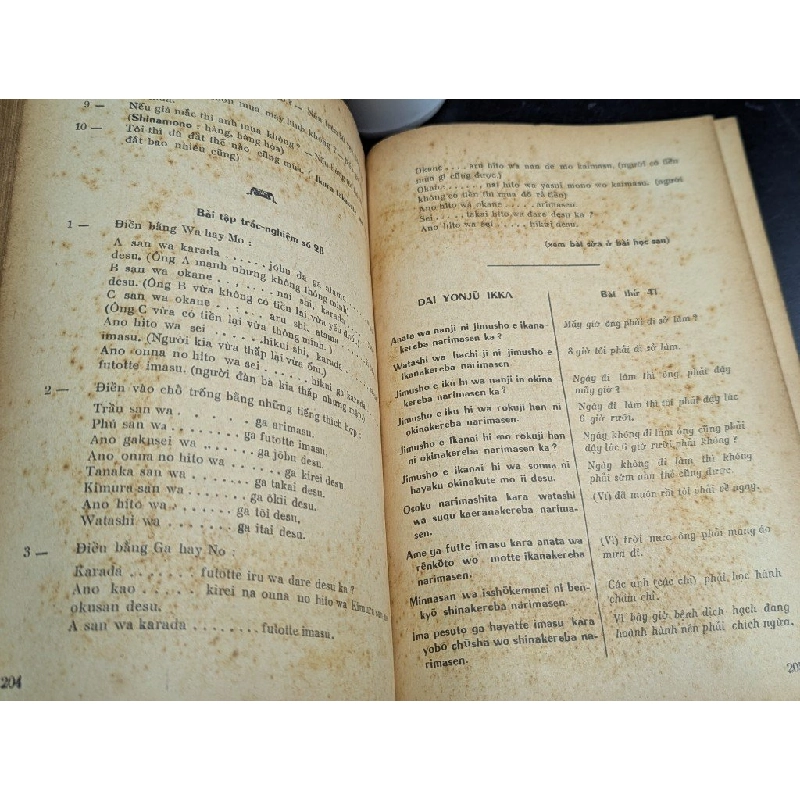 9 — Nếu giá mắc thì anh mua không?
(Shinamono : hàng, hàng hóa)
10 — Tôi thì dù đắt thế nào cũng mua.
đắt bao nhiêu cũng)
Bài tập trắc-nghiệm số 28
1 — Điền bằng Wa hay Mo :
A san wa karada . . . . . . jōbu da ga atama
desu. (Ông A mạnh nhưng không thông minh)
B san wa okane . . . . . . nai shi, karada
desu. (Ông B vừa không có tiền lại vừa yếu
C san wa okane . . . . . . aru shi, atama
(Ông C vừa có tiền lại vừa thông minh.)
Ano hito wa sei . . . . . . hikui shi, karada
imasu. (Người kia vừa thấp lại vừa ốm.)
Ano onna no hito wa sei . . . . . . hikui ga karada
futotte imasu. (người đàn bà kia thấp nhưng
2 — Điền vào chỗ trống bằng những tiếng thích hợp :
Trần san wa . . . . . . ga arimasu.
Phú san wa . . . . . . ga futotte imasu.
Ano gakusei wa . . . . . . ga jōbu desu.
Ano onna no hito wa . . . . . . ga kirei desu.
Tanaka san wa . . . . . . ga takai desu.
Kimura san wa . . . . . . ga ōkii desu.
Ano hito wa . . . . . . ga tōi desu.
Watashi wa . . . . . . ga itai desu.
3 — Điền bằng Ga hay No :
Karada . . . . . . . futotte iru wa dare desu ka ?
Ano kao . . . . . . . kirei na onna no hito wa Kimura san no
okusan desu.
A san wa karada . . . . . . . . futotte imasu.
204
Okane . . . . . aru hito wa nan de mo kaimasu. (người có tiền
mua gì cũng được.)
Okane . . . . . . nai hito wa yasui mono wo kaimasu. (người
không có tiền thì mua đồ rẻ tiền)
Ano hito wa okane . . . . . arimasen.
Sei . . . . . . takai hito wa dare desu ka ?
Ano hito wa sei . . . . . . hikui desu.
(xem bài sửa ở bài học sau)
DAI YONJŪ IKKA
Anata wa nanji ni jimusho e ikana-
kereba narimasen ka ?
Watashi wa hachi ji ni jimusho e
ikanakereba narimasen.
Jimusho e iku hi wa nanji ni okina
kereba narimasen ka ?
Jimusho e iku hi wa rokuji han ni
okinakereba narimasen.
Jimusho e ikanai hi mo rokuji han
ni okinakereba narimasen ka ?
Jimusho e ikanai hi wa sonna ni
hayaku okinakute mo ii desu.
Osoku narimashita kara watashi
wa sugu kaeranakereba narima-
sen.
Ame ga futte imasu kara anata wa
rēnkōto wo motte ikanakereba
narimasen.
Minnasan wa isshōkemmei ni ben-
kyō shinakereba narimasen.
Ima pesuto ga hayatte imasu kara
yobō chūsha wo shinakereba na-
rimasen.
Bài thứ 41
Mấy giờ ông phải đi sở làm ?
8 giờ tôi phải đi sở làm.
Ngày đi làm thì ông phải dậy
mấy giờ ?
Ngày đi làm thì tôi phải dậy lúc
6 giờ rưỡi.
Ngày không đi làm ông cũng phải
dậy lúc 6 giờ rưỡi phải không ?
Ngày không đi làm thì không
phải sớm như thế cũng được.
(Vì) đã muộn rồi tôi phải về ngay.
(Vì) trời mưa ông phải mang áo
mưa đi.
Các anh (các chị) phải học hành
chăm chỉ.
Vì bây giờ bệnh dịch hạch đang
hoành hành nên phải chích ngừa.